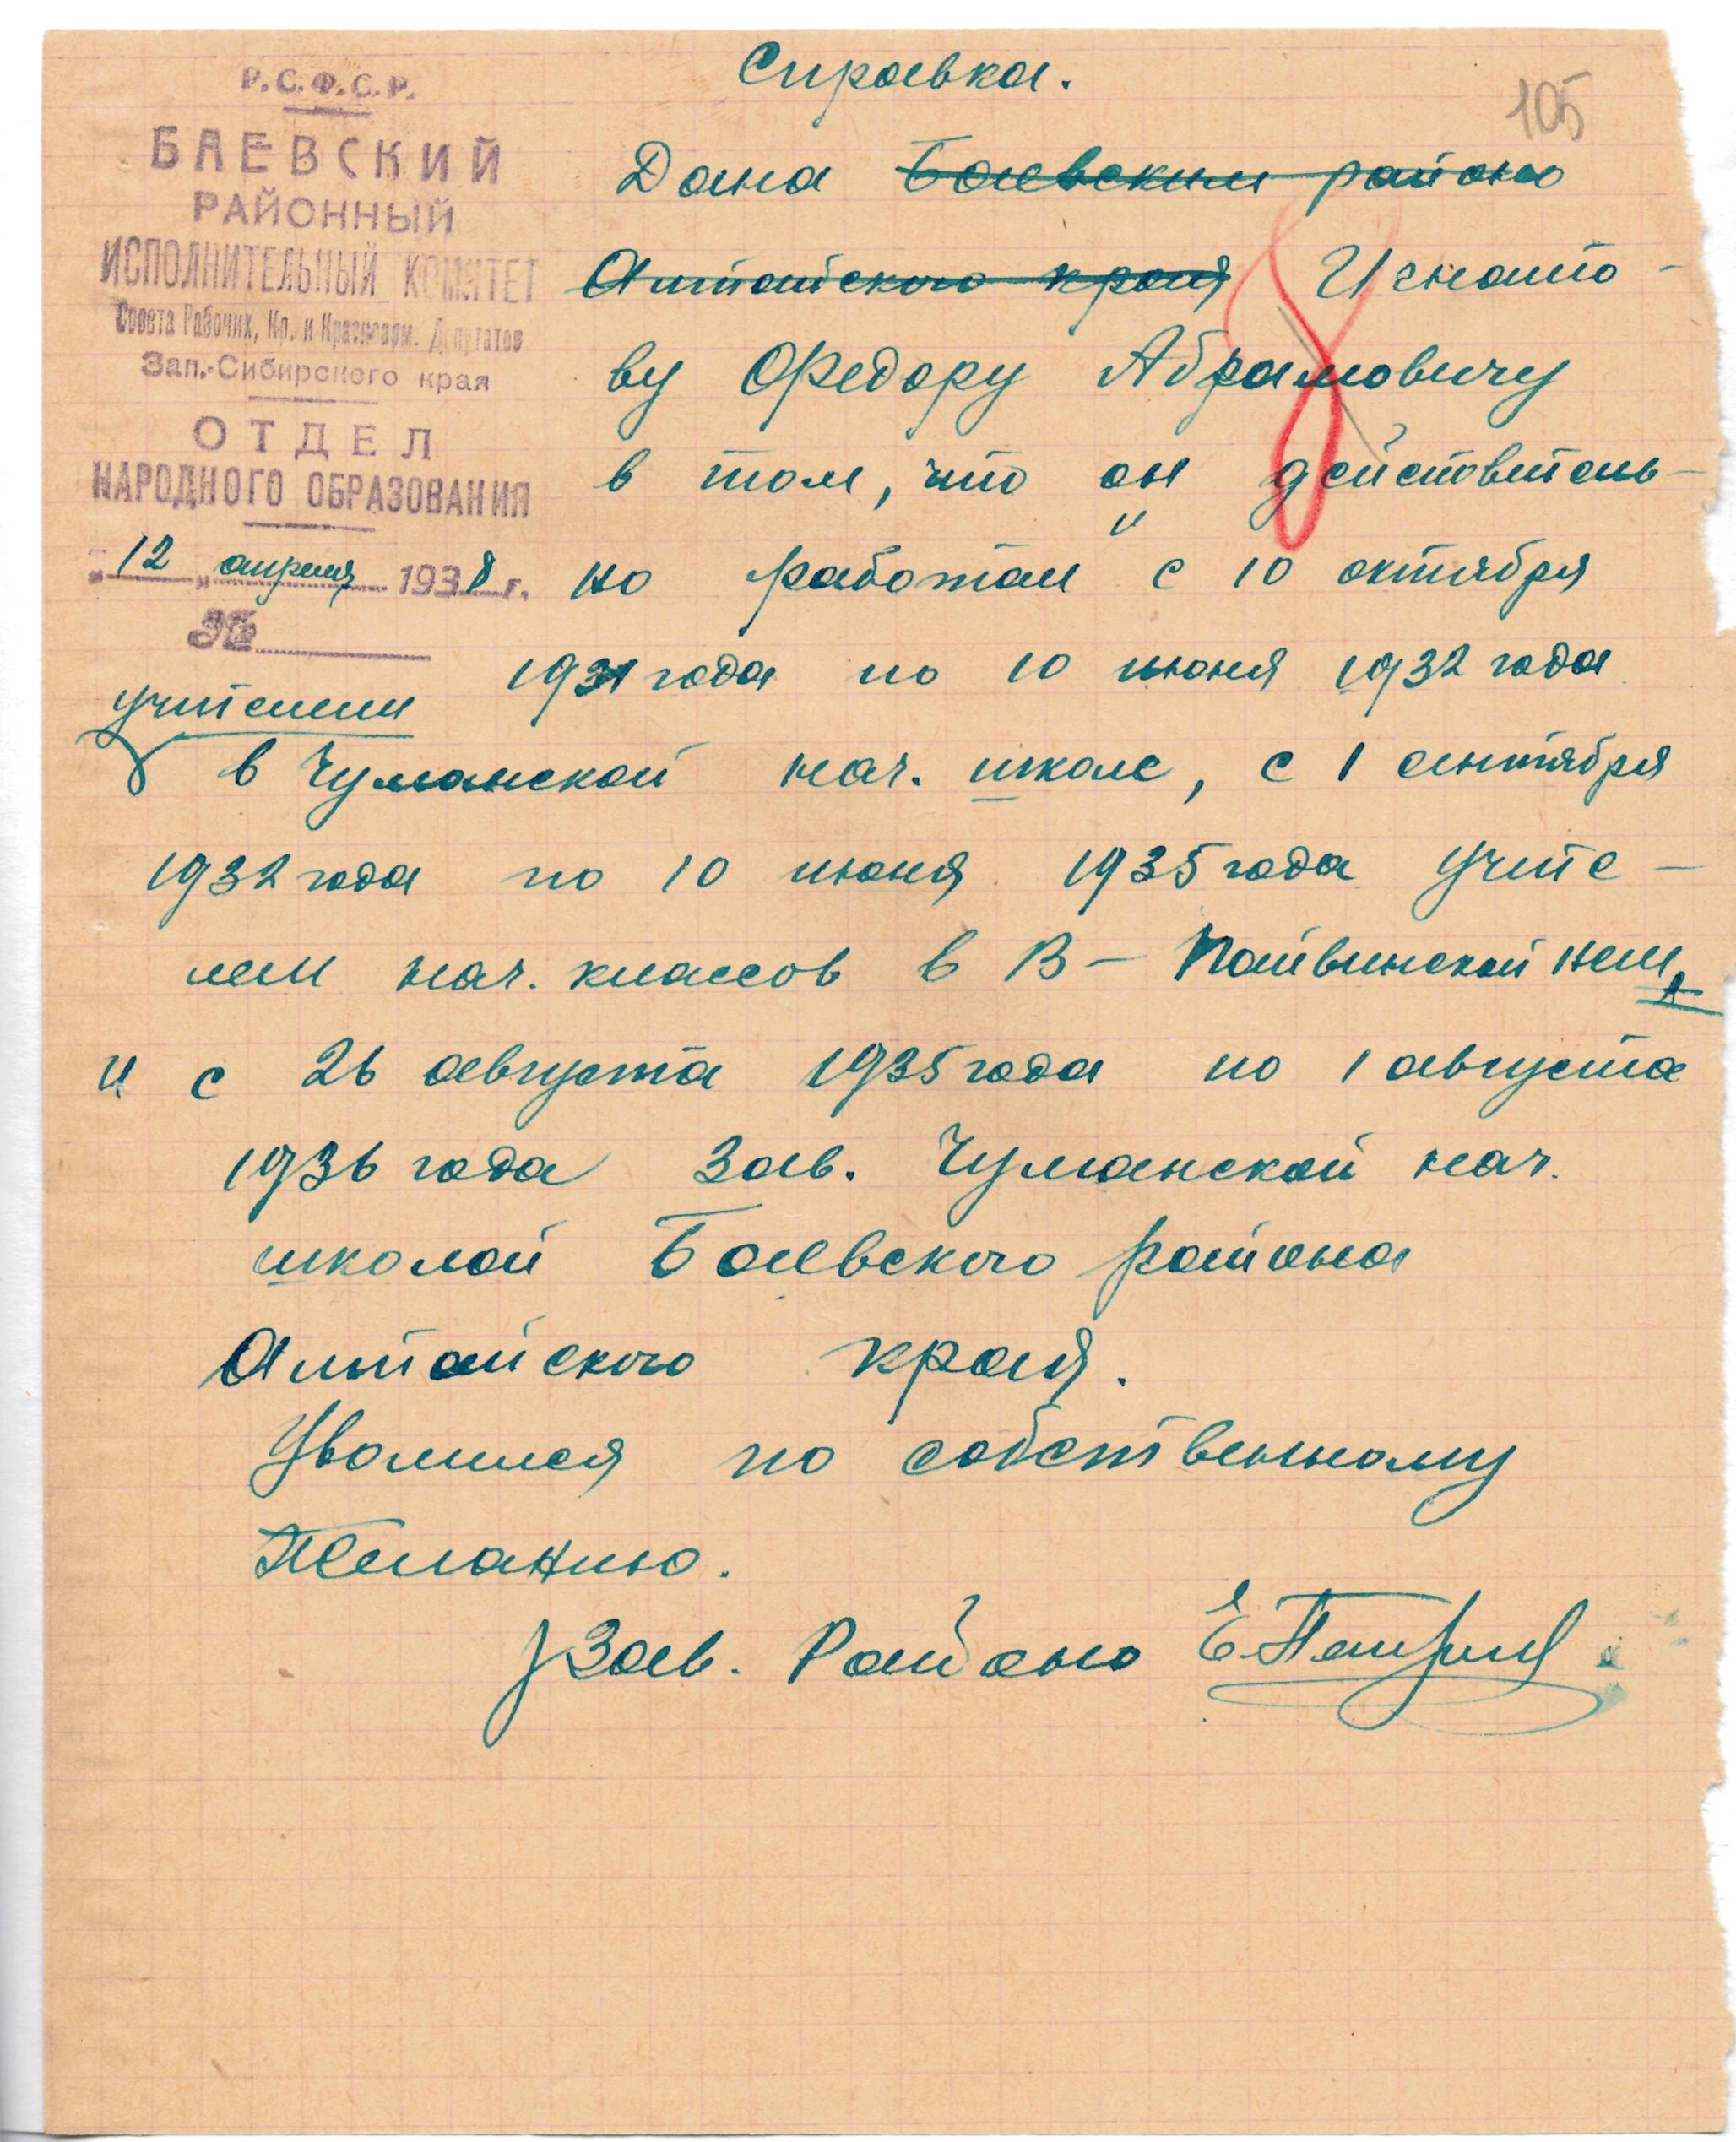 Р.С.Ф.С.Р.
БАЕВСКИЙ
РАЙОННЫЙ
ИСПОЛНИТЕЛЬНЫЙ КОМИТЕТ
Совета Рабочих, Кр. и Красноарм. Депутатов
Зап.-Сибирского края
ОТДЕЛ
НАРОДНОГО ОБРАЗОВАНИЯ
"12" апреля 1938 г.
№
105
8
Справка.
Дана Баевским районо
Алтайского края Игнато-
ву Федору Абрамовичу
в том, что он действитель-
но работал с 10 октября
1931 года по 10 июня 1932 года
учителем
в Чуманской нач. школе, с 1 сентября
1932 года по 10 июня 1935 года учите-
лем нач. классов в В-Пайвинской нсш,
и с 26 августа 1935 года по 1 августа
1936 года Зав. Чуманской нач.
школой Баевского района
Алтайского края.
Уволился по собственному
Желанию.
Зав. Районо